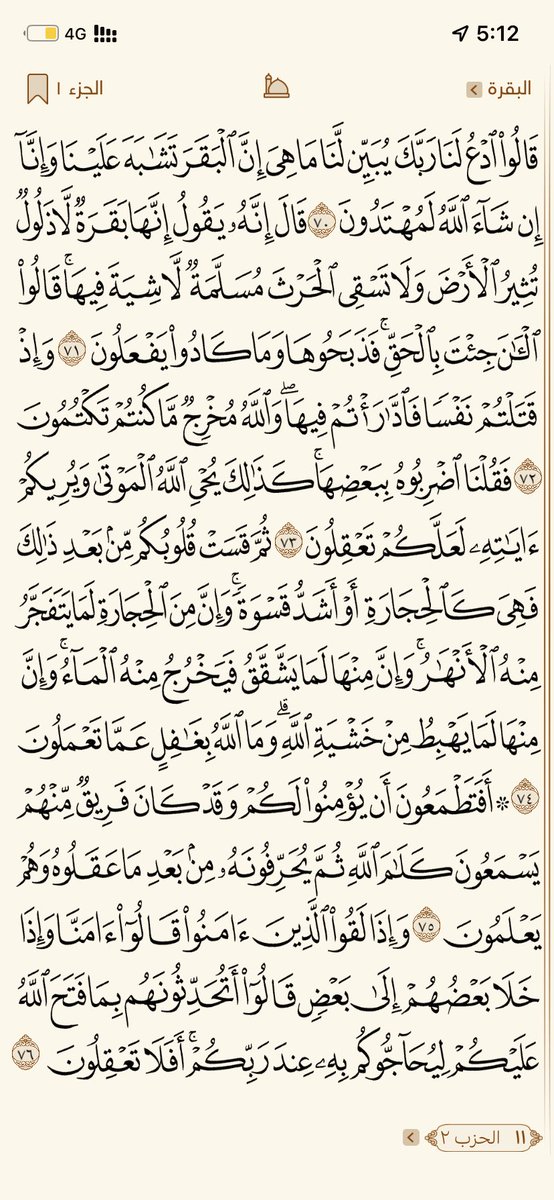 5:12 4G
البقرة الجزء ١
قَالُوا۟ ٱدْعُ لَنَا رَبَّكَ يُبَيِّن لَّنَا مَا هِىَ إِنَّ ٱلْبَقَرَ تَشَـٰبَهَ عَلَيْنَا وَإِنَّآ
إِن شَآءَ ٱللَّهُ لَمُهْتَدُونَ ٧٠ قَالَ إِنَّهُۥ يَقُولُ إِنَّهَا بَقَرَةٌ لَّا ذَلُولٌ
تُثِيرُ ٱلْأَرْضَ وَلَا تَسْقِى ٱلْحَرْثَ مُسَلَّمَةٌ لَّا شِيَةَ فِيهَا ۚ قَالُوا۟
ٱلْـَٔـٰنَ جِئْتَ بِٱلْحَقِّ ۚ فَذَبَحُوهَا وَمَا كَادُوا۟ يَفْعَلُونَ ٧١ وَإِذْ
قَتَلْتُمْ نَفْسًا فَٱدَّٰرَْٰٔتُمْ فِيهَا ۖ وَٱللَّهُ مُخْرِجٌ مَّا كُنتُمْ تَكْتُمُونَ
٧٢ فَقُلْنَا ٱضْرِبُوهُ بِبَعْضِهَا ۚ كَذَٰلِكَ يُحْىِ ٱللَّهُ ٱلْمَوْتَىٰ وَيُرِيكُمْ
ءَايَـٰتِهِۦ لَعَلَّكُمْ تَعْقِلُونَ ٧٣ ثُمَّ قَسَتْ قُلُوبُكُم مِّنۢ بَعْدِ ذَٰلِكَ
فَهِىَ كَٱلْحِجَارَةِ أَوْ أَشَدُّ قَسْوَةً ۚ وَإِنَّ مِنَ ٱلْحِجَارَةِ لَمَا يَتَفَجَّرُ
مِنْهُ ٱلْأَنْهَـٰرُ ۚ وَإِنَّ مِنْهَا لَمَا يَشَّقَّقُ فَيَخْرُجُ مِنْهُ ٱلْمَآءُ ۚ وَإِنَّ
مِنْهَا لَمَا يَهْبِطُ مِنْ خَشْيَةِ ٱللَّهِ ۗ وَمَا ٱللَّهُ بِغَـٰفِلٍ عَمَّا تَعْمَلُونَ
٧٤ ۞ أَفَتَطْمَعُونَ أَن يُؤْمِنُوا۟ لَكُمْ وَقَدْ كَانَ فَرِيقٌ مِّنْهُمْ
يَسْمَعُونَ كَلَـٰمَ ٱللَّهِ ثُمَّ يُحَرِّفُونَهُۥ مِنۢ بَعْدِ مَا عَقَلُوهُ وَهُمْ
يَعْلَمُونَ ٧٥ وَإِذَا لَقُوا۟ ٱلَّذِينَ ءَامَنُوا۟ قَالُوٓا۟ ءَامَنَّا وَإِذَا
خَلَا بَعْضُهُمْ إِلَىٰ بَعْضٍ قَالُوٓا۟ أَتُحَدِّثُونَهُم بِمَا فَتَحَ ٱللَّهُ
عَلَيْكُمْ لِيُحَآجُّوكُم بِهِۦ عِندَ رَبِّكُمْ ۚ أَفَلَا تَعْقِلُونَ ٧٦
١١ الحزب ٢